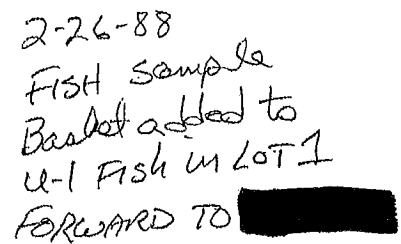 2-26-88
FISH Sample
Basket added to
U-1 FISH in LOT 1
FORWARD TO